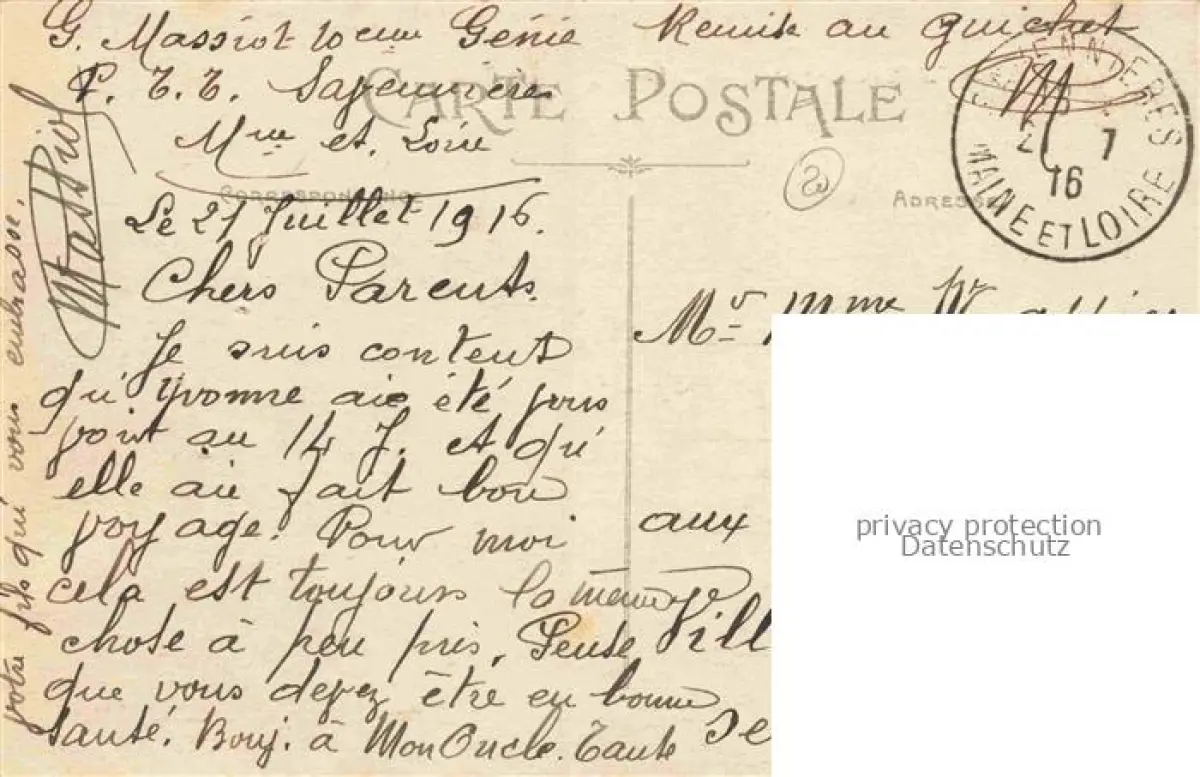 G. Massiot 10eme Génie Remise au guichet
P.T.T. Sapennières
Mne et. Loire
CARTE POSTALE
CORRESPONDANCE
ADRESSE
ENNIERES
21 7
16
MAINE ET LOIRE
Le 21 Juillet 1916.
Chers Parents.
Je suis content
qu'Yvonne aie été pour
point au 14 J. et qu'
elle aie fait bon
voyage. Pour moi
cela est toujours la meme
chose à peu près. Pense
que vous devez être en bonne
santé. Bonj. à Mon Oncle. Tante
votre fils qui vous embrasse.
Massiot
Mr Mme
aux
Vill
Se
privacy protection
Datenschutz